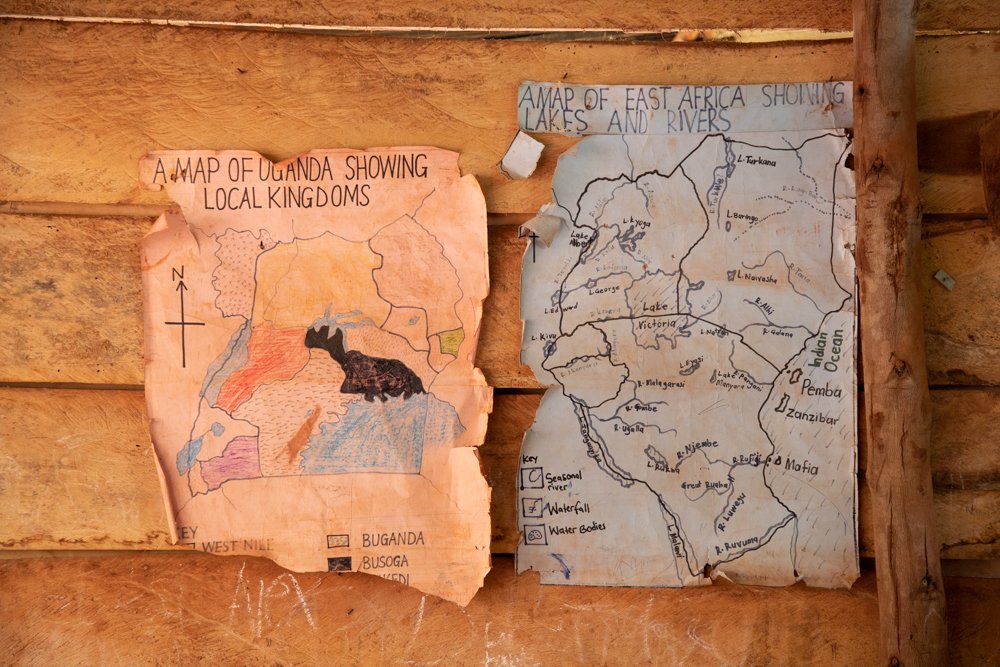 A MAP OF UGANDA SHOWING
LOCAL KINGDOMS
N
EY
WEST NILE
BUGANDA
BUSOGA
KEDI
A MAP OF EAST AFRICA SHOWING
LAKES AND RIVERS
L. Turkana
R. Turkwel
L. Baringo
L. Kyoga
Lake
Albert
R. Katonga
L. George
L. Edward
L. Naivasha
R. Tana
R. Athi
R. Galana
Lake
Victoria
L. Natron
L. Kivu
L. Eyasi
Lake
Manyara
R. Pangani
R. Malagarasi
R. Gombe
R. Ugalla
L. Tanganyika
L. Rukwa
R. Njembe
Great Ruaha
R. Rufiji
R. Luwegu
R. Ruvuma
L. Malawi
Indian
Ocean
Pemba
Zanzibar
Mafia
KEY
Seasonal
river
Waterfall
Water Bodies